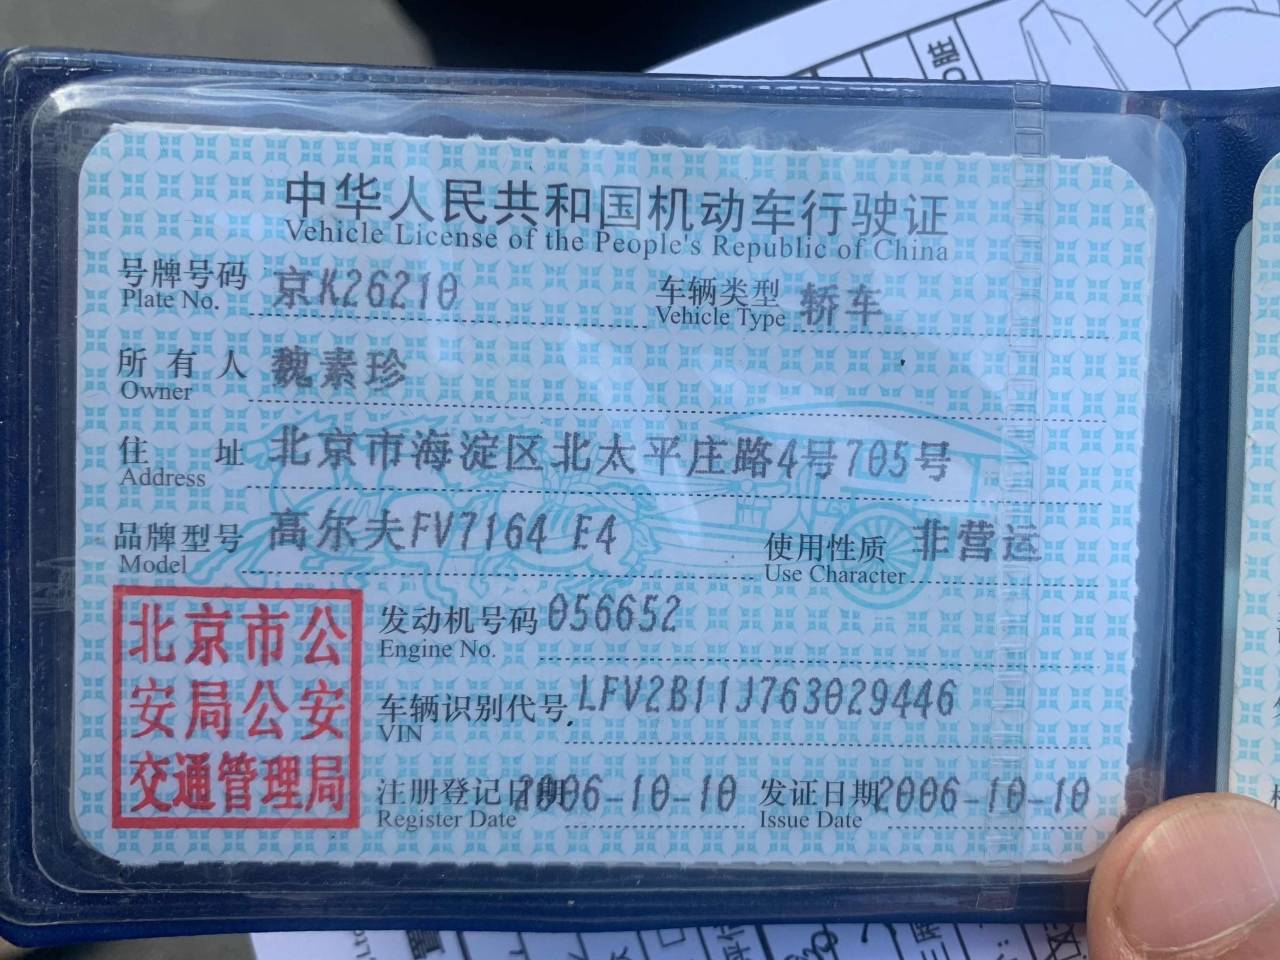 中华人民共和国机动车行驶证
Vehicle License of the People's Republic of China
号牌号码 京K26210 车辆类型 轿车
Plate No. Vehicle Type
所有人 魏素珍
Owner
住址 北京市海淀区北太平庄路4号705号
Address
品牌型号 高尔夫FV7164 E4 使用性质 非营运
Model Use Character
北京市公
安局公安
交通管理局
发动机号码 056652
Engine No.
车辆识别代号 LFV2B11J763029446
VIN
注册登记日期 2006-10-10 发证日期 2006-10-10
Register Date Issue Date